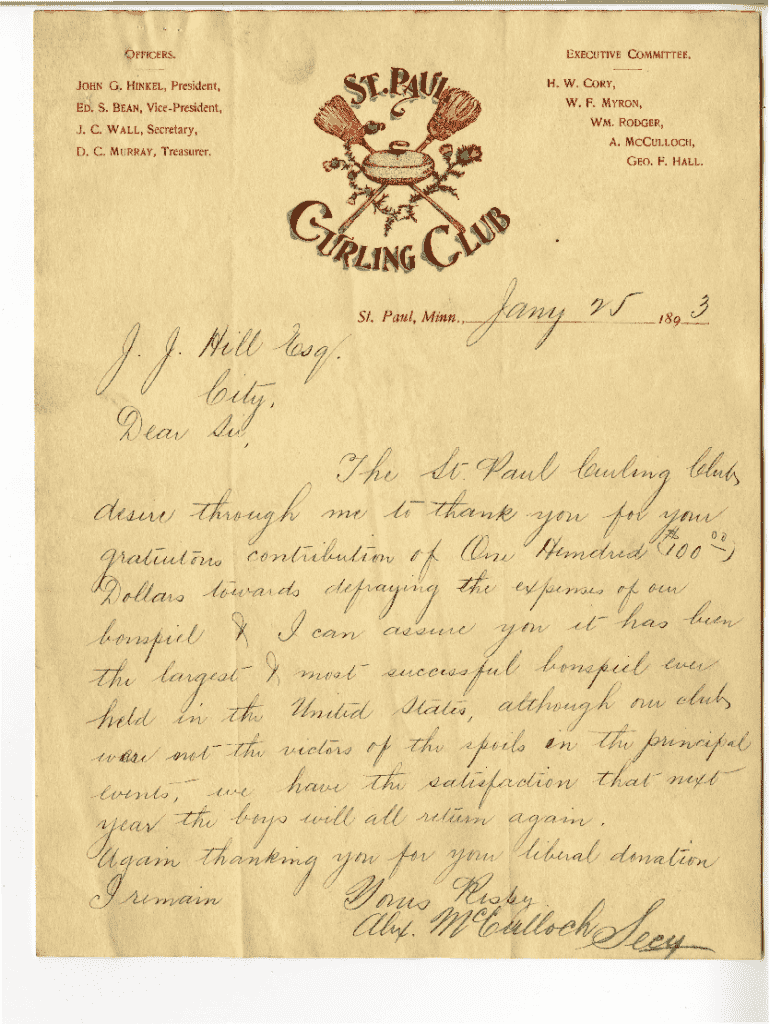 OFFICERS.
JOHN G. HINKEL, President,
ED. S. BEAN, Vice-President,
J. C. WALL, Secretary,
D. C. MURRAY, Treasurer.
ST. PAUL
CURLING CLUB
EXECUTIVE COMMITTEE.
H. W. CORY,
W. F. MYRON,
WM. RODGER,
A. MCCULLOCH,
GEO. F. HALL.
St. Paul, Minn., Jany 25 1893
J. J. Hill Esq.
City,
Dear Sir,
The St. Paul Curling Club,
desire through me to thank you for your
gratiutous contribution of One Hundred ($100 00)
Dollars towards defraying the expenses of our
bonspiel & I can assure you it has been
the largest & most successful bonspiel ever
held in the United States, although our club,
were not the victors of the spoils in the principal
events, we have the satisfaction that next
year the boys will all return again.
Again thanking you for your liberal donation
I remain Yours Respy.
Alex. McCulloch Secy